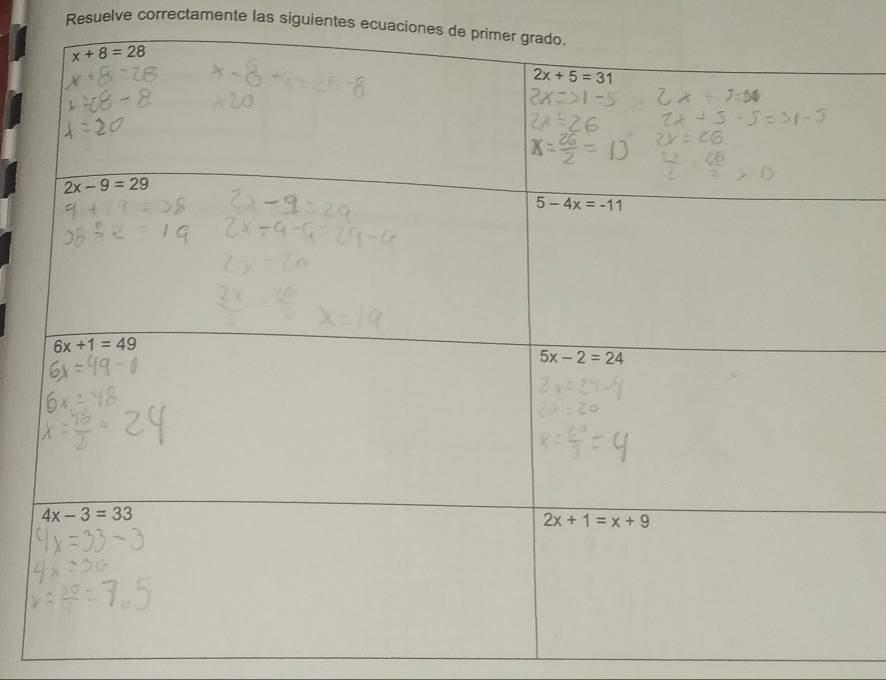 Resuelve correctamente las siguientes ecuaciones de primer grado.
x + 8 = 28
x + 8 = 28
x = 28 - 8
x = 20
x - 8 + 8 = 28 - 8
x 20
2x + 5 = 31
2x = 31 - 5
2x = 26
x = 26/2 = 13
2x + 5 - 5 = 31 - 5
2x = 26
2x/2 = 26/2 x = 13
2x - 9 = 29
9 + 29 = 38
38 ÷ 2 = 19
2x - 9 = 29
2x ÷ 9 - 9 = 29 - 9
2x = 20
x = 19
5 - 4x = -11
6x + 1 = 49
6x = 49 - 1
6x = 48
x = 48/2 = 24
5x - 2 = 24
2x = 20
x = 20/5 = 4
4x - 3 = 33
4x = 33 - 3
4x = 30
x = 30/4 = 7.5
2x + 1 = x + 9